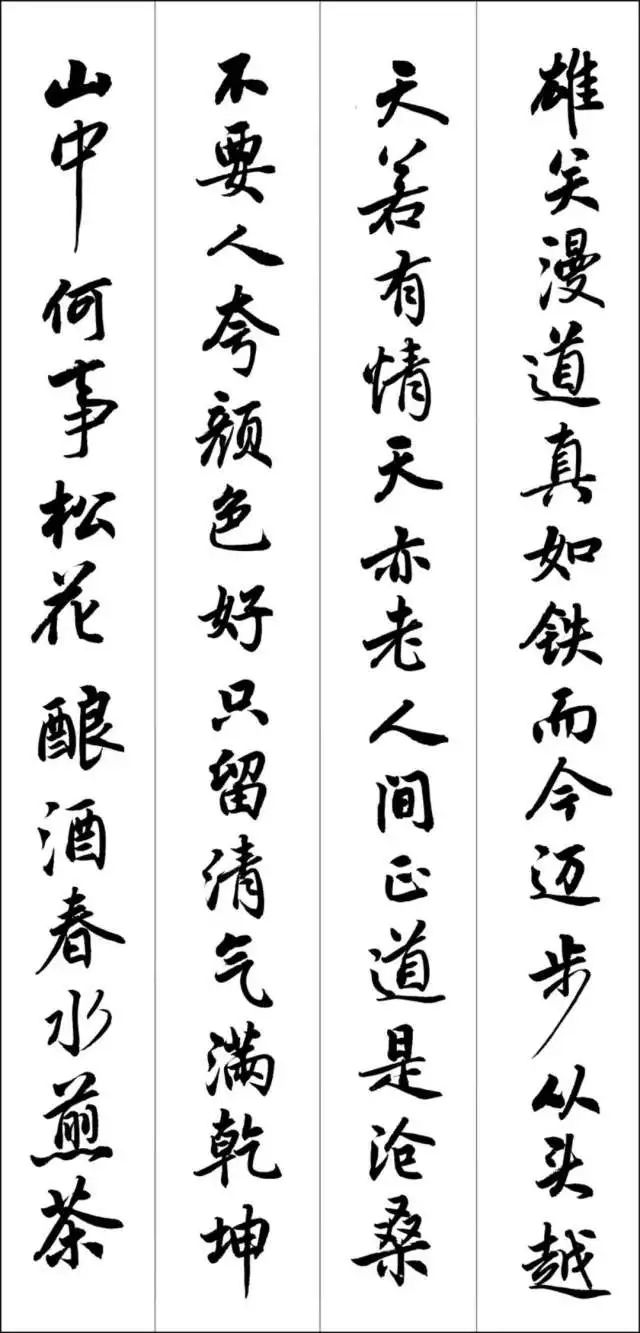 雄关漫道真如铁而今迈步从头越
天若有情天亦老人间正道是沧桑
不要人夸颜色好只留清气满乾坤
山中何事松花酿酒春水煎茶